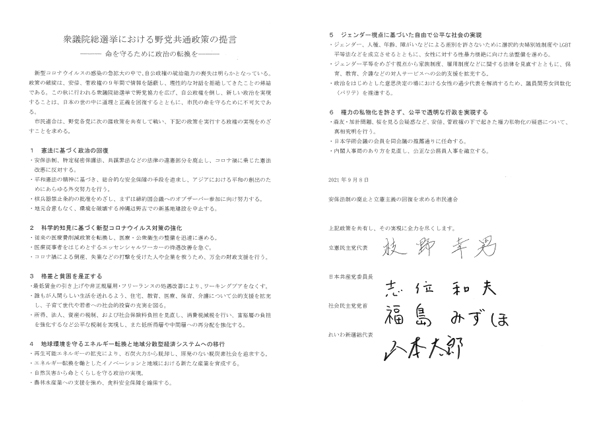 衆議院総選挙における野党共通政策の提言
―― 命を守るために政治の転換を ――
新型コロナウイルスの感染の急拡大の中で、自公政権の統治能力の喪失は明らかとなっている。
政策の破綻は、安倍、菅政権の9年間で情報を隠蔽し、理性的な対話を拒絶してきたことの帰結
である。この秋に行われる衆議院総選挙で野党協力を広げ、自公政権を倒し、新しい政治を実現
することは、日本の世の中に道理と正義を回復するとともに、市民の命を守るために不可欠であ
る。
市民連合は、野党各党に次の諸政策を共有して戦い、下記の政策を実行する政権の実現をめざ
すことを求める。
1 憲法に基づく政治の回復
・安保法制、特定秘密保護法、共謀罪法などの法律の違憲部分を廃止し、コロナ禍に乗じた憲法
改悪に反対する。
・平和憲法の精神に基づき、総合的な安全保障の手段を追求し、アジアにおける平和の創出のた
めにあらゆる外交努力を行う。
・核兵器禁止条約の批准をめざし、まずは締約国会議へのオブザーバー参加に向け努力する。
・地元合意もなく、環境を破壊する沖縄辺野古での新基地建設を中止する。
2 科学的知見に基づく新型コロナウイルス対策の強化
・従来の医療費削減政策を転換し、医療・公衆衛生の整備を迅速に進める。
・医療従事者をはじめとするエッセンシャルワーカーの待遇改善を急ぐ。
・コロナ禍による倒産、失業などの打撃を受けた人や企業を救うため、万全の財政支援を行う。
3 格差と貧困を是正する
・最低賃金の引き上げや非正規雇用・フリーランスの処遇改善により、ワーキングプアをなくす。
・誰もが人間らしい生活を送れるよう、住宅、教育、医療、保育、介護について公的支援を拡充
し、子育て世代や若者への社会的投資の充実を図る。
・所得、法人、資産の税制、および社会保険料負担を見直し、消費税減税を行い、富裕層の負担
を強化するなど公平な税制を実現し、また低所得層や中間層への再分配を強化する。
4 地球環境を守るエネルギー転換と地域分散型経済システムへの移行
・再生可能エネルギーの拡充により、石炭火力から脱却し、原発のない脱炭素社会を追求する。
・エネルギー転換を軸としたイノベーションと地域における新たな産業を育成する。
・自然災害から命とくらしを守る政治の実現。
・農林水産業への支援を強め、食料安全保障を確保する。
5 ジェンダー視点に基づいた自由で公平な社会の実現
・ジェンダー、人種、年齢、障がいなどによる差別を許さないために選択的夫婦別姓制度やLGBT
平等法などを成立させるとともに、女性に対する性暴力根絶に向けた法整備を進める。
・ジェンダー平等をめざす視点から家族制度、雇用制度などに関する法律を見直すとともに、保
育、教育、介護などの対人サービスへの公的支援を拡充する。
・政治をはじめとした意思決定の場における女性の過少代表を解消するため、議員間男女同数化
（パリテ）を推進する。
6 権力の私物化を許さず、公平で透明な行政を実現する
・森友・加計問題、桜を見る会疑惑など、安倍、菅政権の下で起きた権力私物化の疑惑について、
真相究明を行う。
・日本学術会議の会員を同会議の推薦通りに任命する。
・内閣人事局のあり方を見直し、公正な公務員人事を確立する。
2021年9月8日
安保法制の廃止と立憲主義の回復を求める市民連合
上記政策を共有し、その実現に全力を尽くします。
立憲民主党代表
枝野幸男
日本共産党委員長
志位和夫
社会民主党党首
福島みずほ
れいわ新選組代表
山本太郎